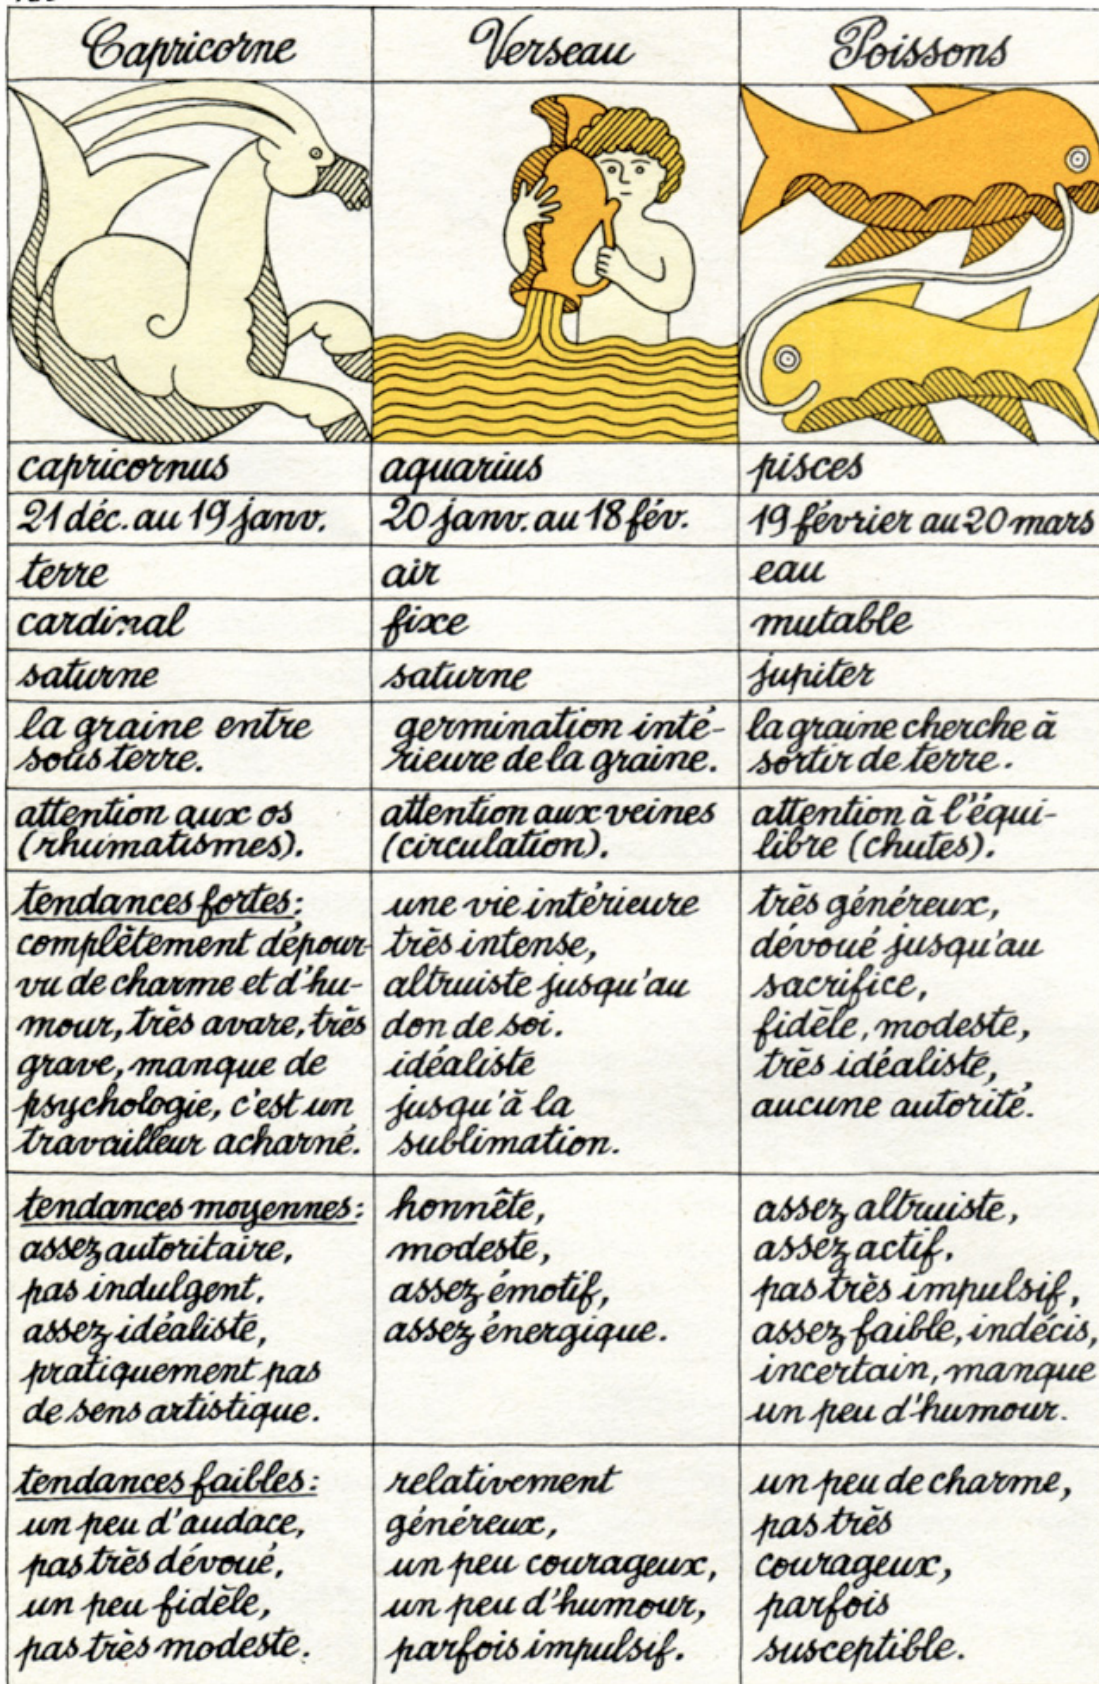 Capricorne
Verseau
Poissons
capricornus
aquarius
pisces
21 déc. au 19 janv.
20 janv. au 18 fév.
19 février au 20 mars
terre
air
eau
cardinal
fixe
mutable
saturne
saturne
jupiter
la graine entre
sous terre.
germination inté-
rieure de la graine.
la graine cherche à
sortir de terre.
attention aux os
(rhumatismes).
attention aux veines
(circulation).
attention à l'équi-
libre (chutes).
tendances fortes:
complètement dépour-
vu de charme et d'hu-
mour, très avare, très
grave, manque de
psychologie, c'est un
travailleur acharné.
une vie intérieure
très intense,
altruiste jusqu'au
don de soi.
idéaliste
jusqu'à la
sublimation.
très généreux,
dévoué jusqu'au
sacrifice,
fidèle, modeste,
très idéaliste,
aucune autorité.
tendances moyennes:
assez autoritaire,
pas indulgent,
assez idéaliste,
pratiquement pas
de sens artistique.
honnête,
modeste,
assez émotif,
assez énergique.
assez altruiste,
assez actif,
pas très impulsif,
assez faible, indécis,
incertain, manque
un peu d'humour.
tendances faibles:
un peu d'audace,
pas très dévoué,
un peu fidèle,
pas très modeste.
relativement
généreux,
un peu courageux,
un peu d'humour,
parfois impulsif.
un peu de charme,
pas très
courageux,
parfois
susceptible.